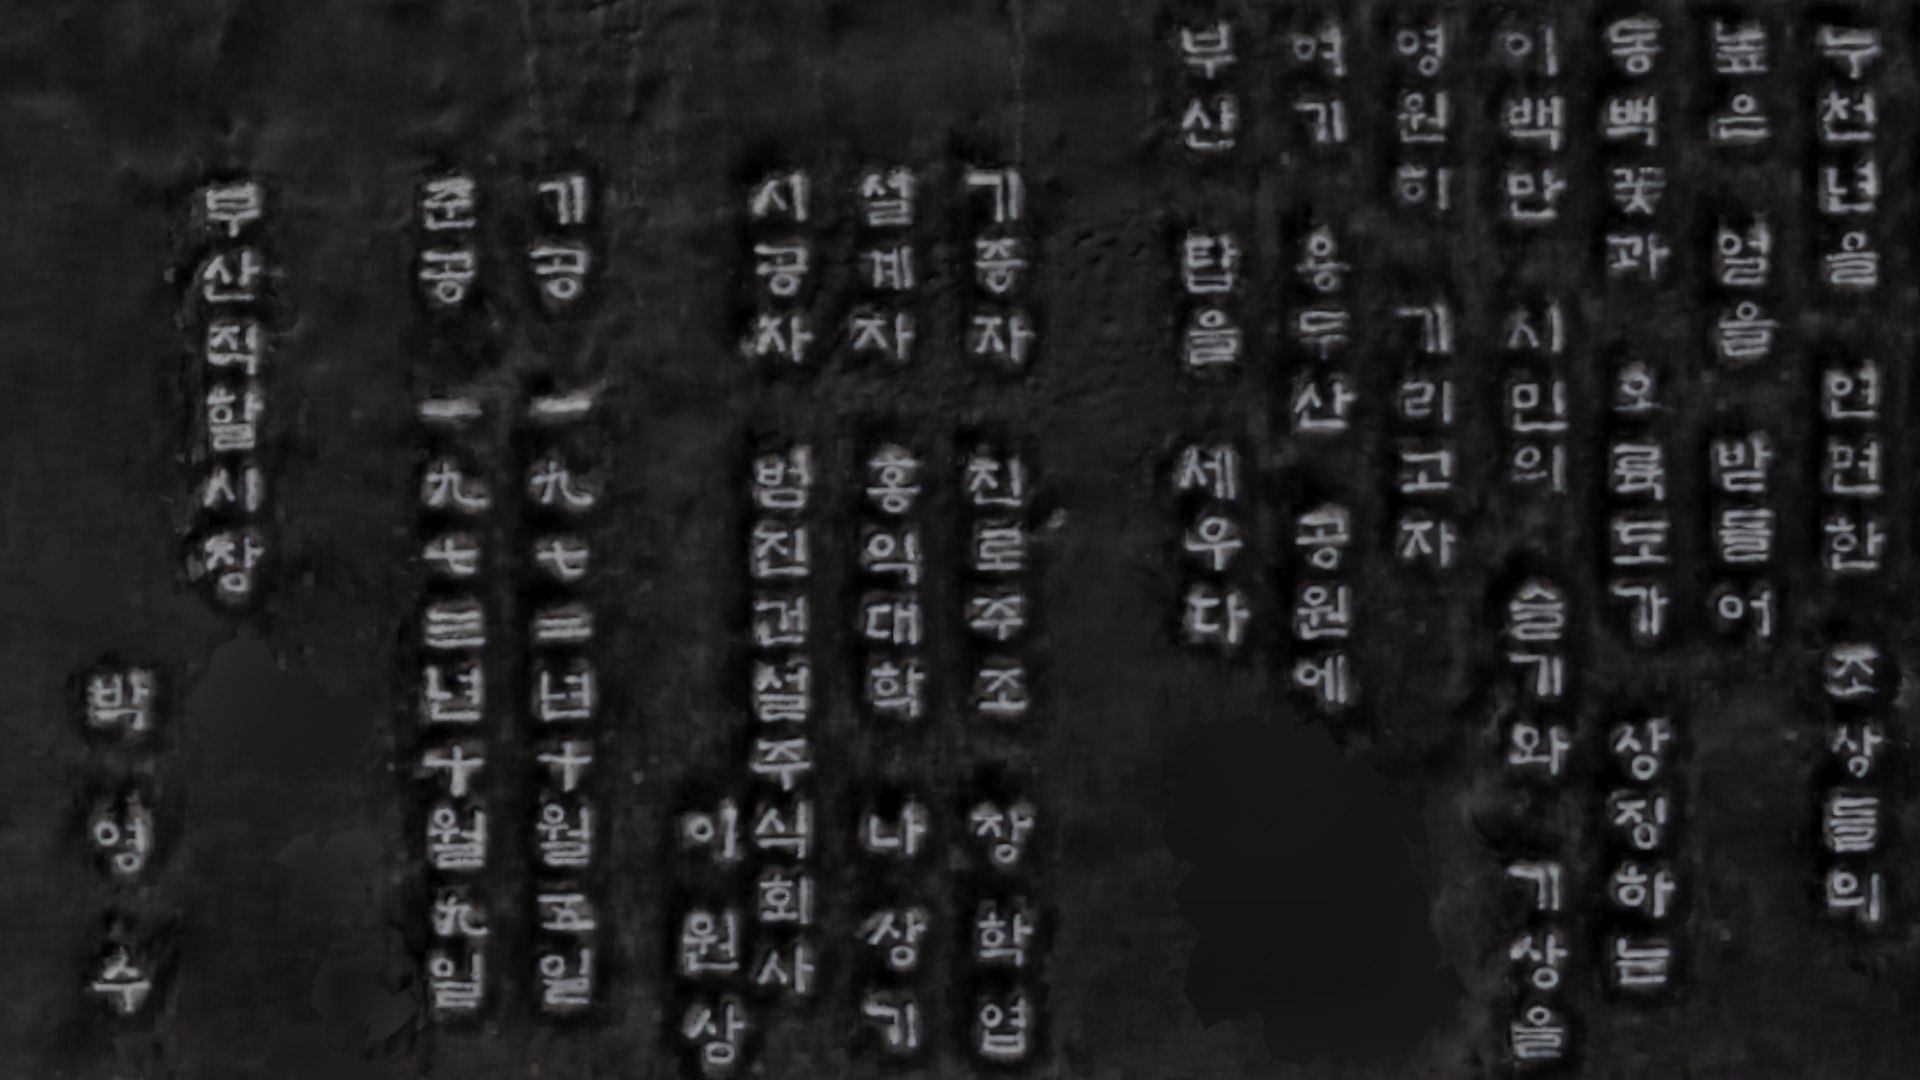 두천년을 연면한 조상들의
높은 얼을 받들어
동백꽃과 오륙도가 상징하는
이백만 시민의 슬기와 기상을
영원히 기리고자
여기 용두산 공원에
부산 탑을 세우다
기증자 진로주조 장학엽
설계자 홍익대학 나상기
시공자 범진건설주식회사
이원상
기공 一九七二년十월五일
준공 一九七三년十월九일
부산직할시장
박영수